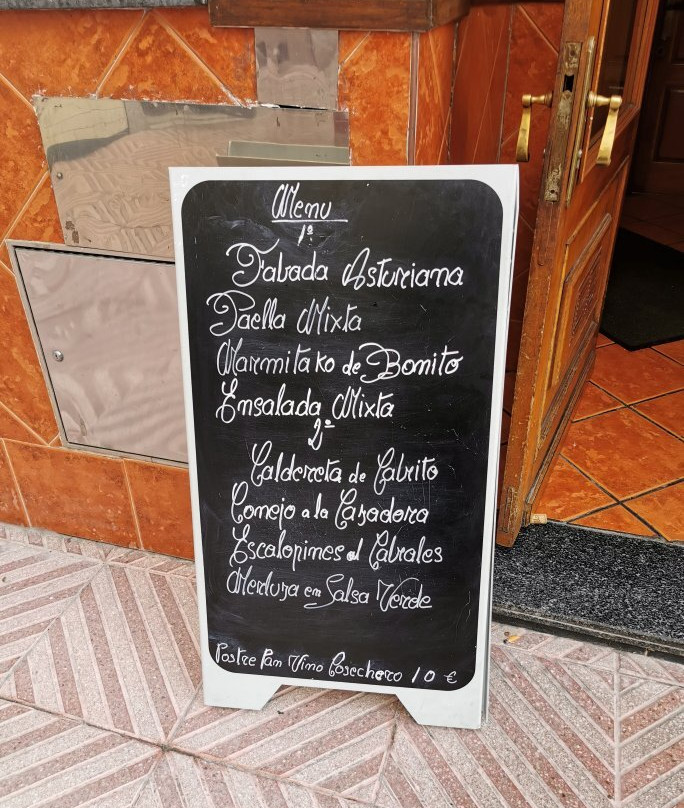 Menu
1º
Fabada Asturiana
Paella Mixta
Marmitako de Bonito
Ensalada Mixta
2º
Caldereta de Cabrito
Conejo a la Cazadora
Escalopines al Cabrales
Merluza en Salsa Verde
Postre Pan Vino Cosechero 10 €